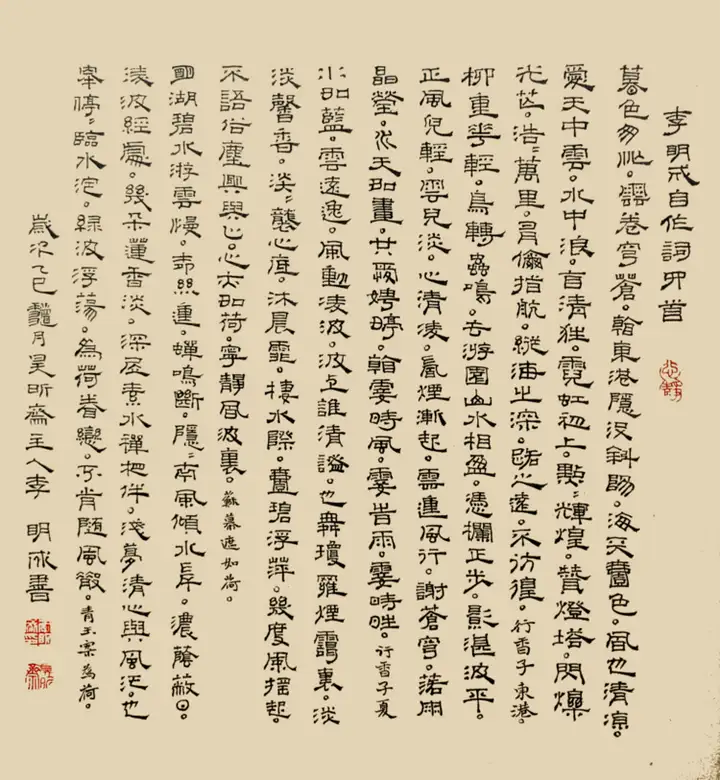 李明成自作詞四首
暮色匆忙。卷穹蒼。看東港隱没斜陽。海天藍色。風也清涼。
愛天中雲。水中浪。言清狂。霓虹初上。點點輝煌。贊燈塔。閃爍
光芒。浩浩萬里。肩指航。縱海之深。路之遠。不彷徨。行香子東港。
柳重花輕。鳥轉蟲鳴。去游園山水相盈。憑欄正步。影湛波平。
正風兒輕。雲兒淡。心清凌。氤煙漸起。雲連風行。謝蒼穹。落雨
晶瑩。水天如畫。共爾娉婷。看霎時風。霎旹雨。霎時晴。行香子夏
水如藍。雲遠逸。風動凌波。波與誰清謐。也舞瓊羅煙靄裏。淡
淡馨香。淡淡襲心底。沐晨霏。棲水際。疊碧浮萍。幾度風摇起。
不語俗塵興與亡。心亦如荷。寧靜風波裏。蘇幕遮如荷。
明湖碧水游雲慢。却絲連。蟬鳴斷。隱隱南風傾水岸。濃蔭蔽日。
凌波經處。幾朵蓮香淡。深居素水禪相伴。淺夢清心與風泛。也
停停臨水沱。緑波浮蕩。為荷眷戀。不肯随風散。青玉案為荷。
歲次乙巳月昊昕齋主人李明成書